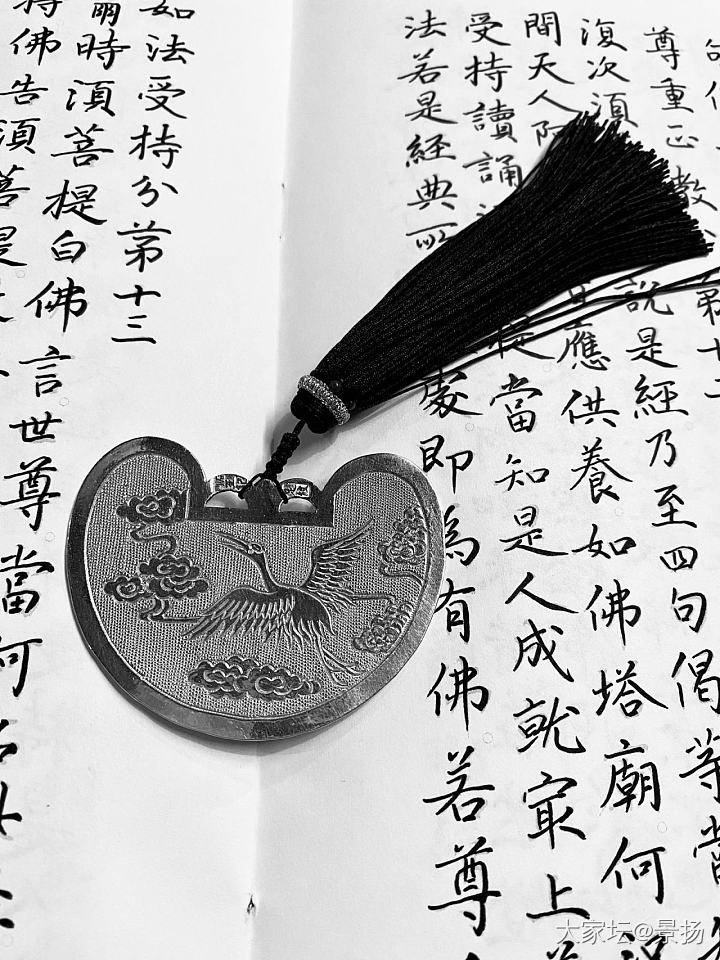 句
尊重正教第十二
復次須說是經乃至四句偈等當
間天人阿皆應供養如佛塔廟何況
受持讀誦提當知是人成就最上
法若是經典所處即為有佛若尊
如法受持分第十三
爾時須菩提白佛言世尊當何名此
持佛告須菩提
大家坛@景扬